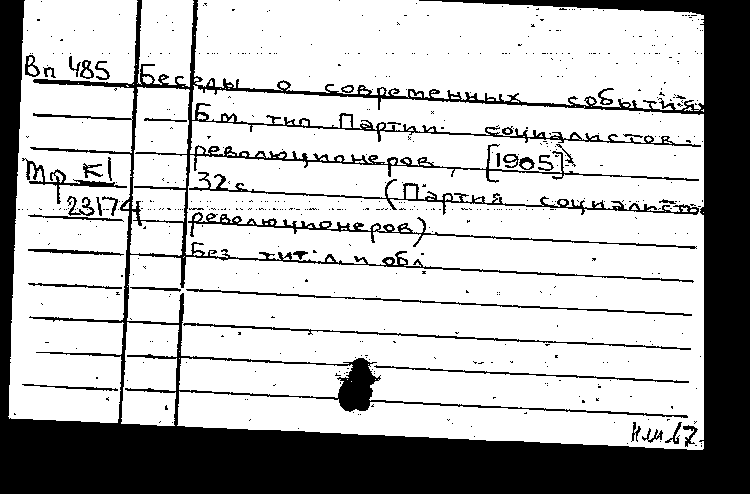 Вп 485 Беседы о современных событиях
Б.м., тип. Партии социалистов-
революционеров, [1905].
Мф К1 32 с. (Партия социалистов
23174 революционеров)
Без тит. л. и обл.